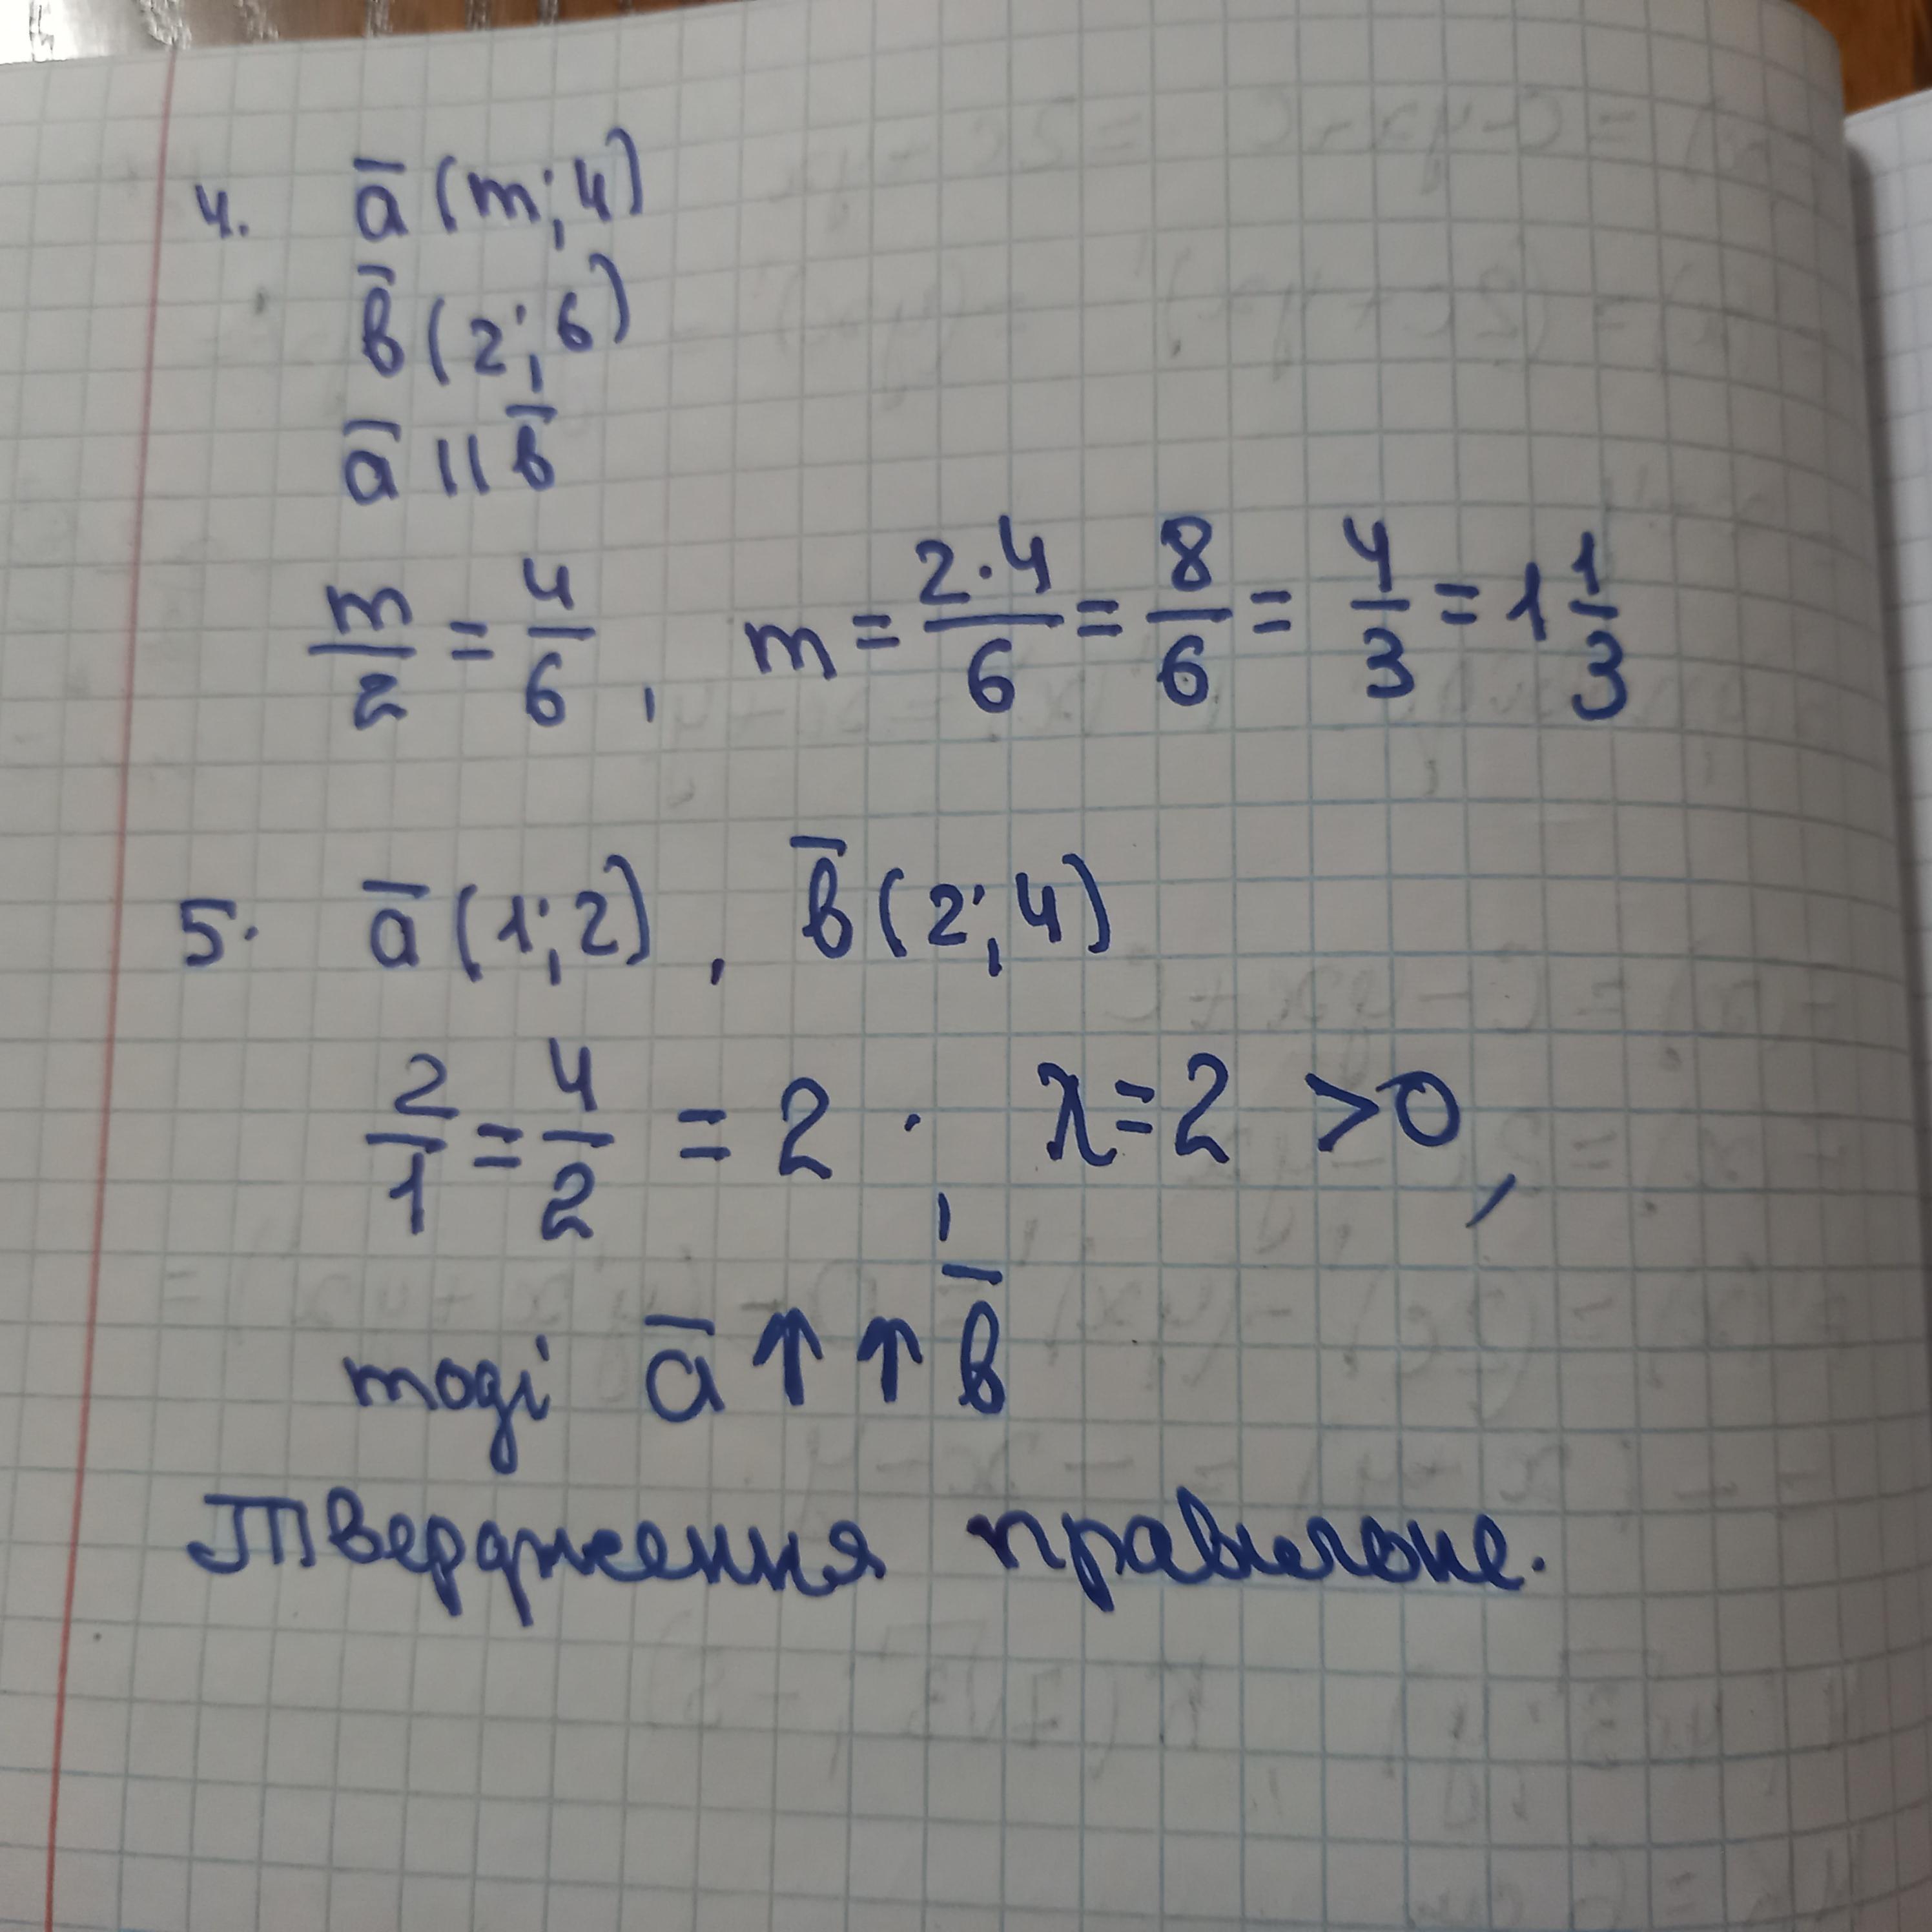 4. a̅ (m; 4)
b̅ (2; 6)
a̅ || b̅
m/2 = 4/6, m = 2·4/6 = 8/6 = 4/3 = 1 1/3
5. a̅ (1; 2), b̅ (2; 4)
2/1 = 4/2 = 2; λ = 2 > 0,
тоді a̅ ↑↑ b̅
Твердження правильне.